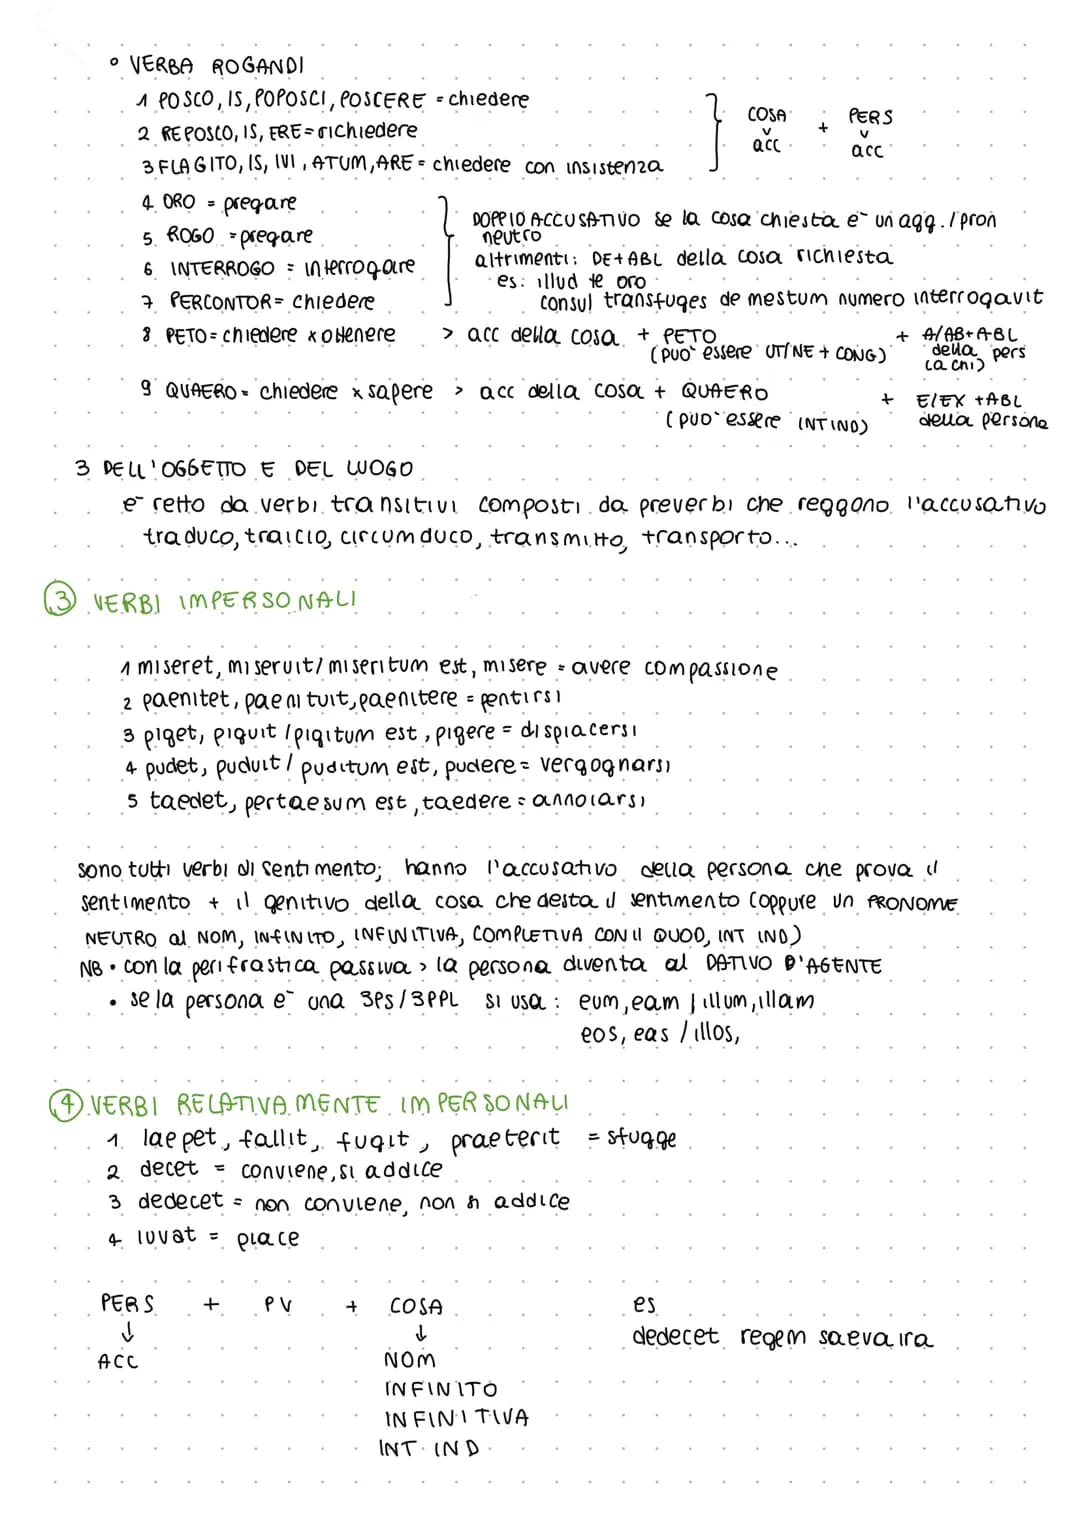 ° VERBA ROGANDI
1 POSCO, IS, POPOSCI, POSCERE = chiedere
2 REPOSCO, IS, ERE = richiedere
3 FLAGITO, IS, IVI, ATUM, ARE = chiedere con insistenza
} COSA + PERS
acc acc
4 ORO = pregare
5 ROGO = pregare
6 INTERROGO = interrogare
7 PERCONTOR = chiedere
DOPPIO ACCUSATIVO se la cosa chiesta è un agg. / pron
neutro
altrimenti: DE + ABL della cosa richiesta
es: illud te oro
consul transfuges de mestum numero interrogavit
8 PETO = chiedere x ottenere > acc della cosa + PETO + A/AB + ABL
(può essere UT/NE + CONG) della pers
(a chi)
9 QUAERO = chiedere x sapere > acc della cosa + QUAERO + E/EX + ABL
(può essere INT IND) della persona
3 DELL'OGGETTO E DEL LUOGO
è retto da verbi transitivi composti da preverbi che reggono l'accusativo
traduco, traicio, circumduco, transmitto, transporto...
3 VERBI IMPERSONALI
1 miseret, miseruit / miseritum est, misere = avere compassione
2 paenitet, paenituit, paenitere = pentirsi
3 piget, piguit / pigitum est, pigere = dispiacersi
4 pudet, puduit / puditum est, pudere = vergognarsi
5 taedet, pertaesum est, taedere = annoiarsi
sono tutti verbi di sentimento; hanno l'accusativo della persona che prova il
sentimento + il genitivo della cosa che desta il sentimento (oppure un PRONOME
NEUTRO al NOM, INFINITO, INFINITIVA, COMPLETIVA CON il QUOD, INT IND)
NB • con la perifrastica passiva > la persona diventa al DATIVO D'AGENTE
• se la persona è una 3PS/3PPL si usa : eum, eam / illum, illam
eos, eas / illos,
4 VERBI RELATIVAMENTE IMPERSONALI
1. laepet, fallit, fugit, praeterit = sfugge
2 decet = conviene, si addice
3 dedecet = non conviene, non si addice
4 iuvat = piace
PERS + PV + COSA es
↓ ↓ dedecet regem saeva ira
ACC NOM
INFINITO
INFINITIVA
INT IND